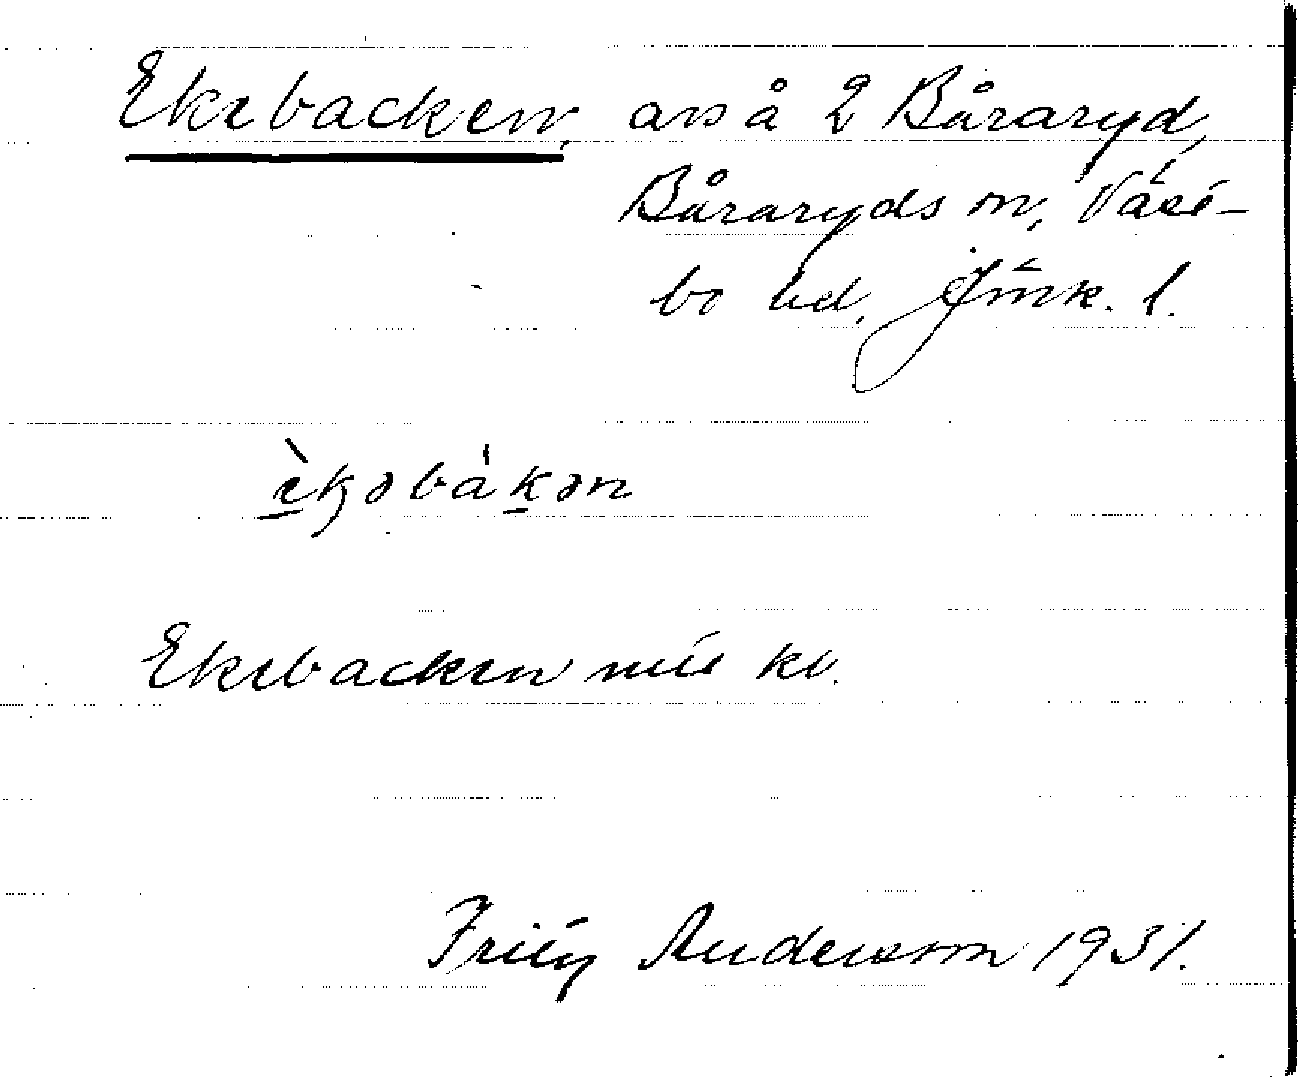 Ekebacken, avs å 2 Båraryd,
Båraryds sn, Väst-
bo hd, Jönk. l.
èkəbákən
Ekebacken mtt kv.
Fritz Anderson 1931.